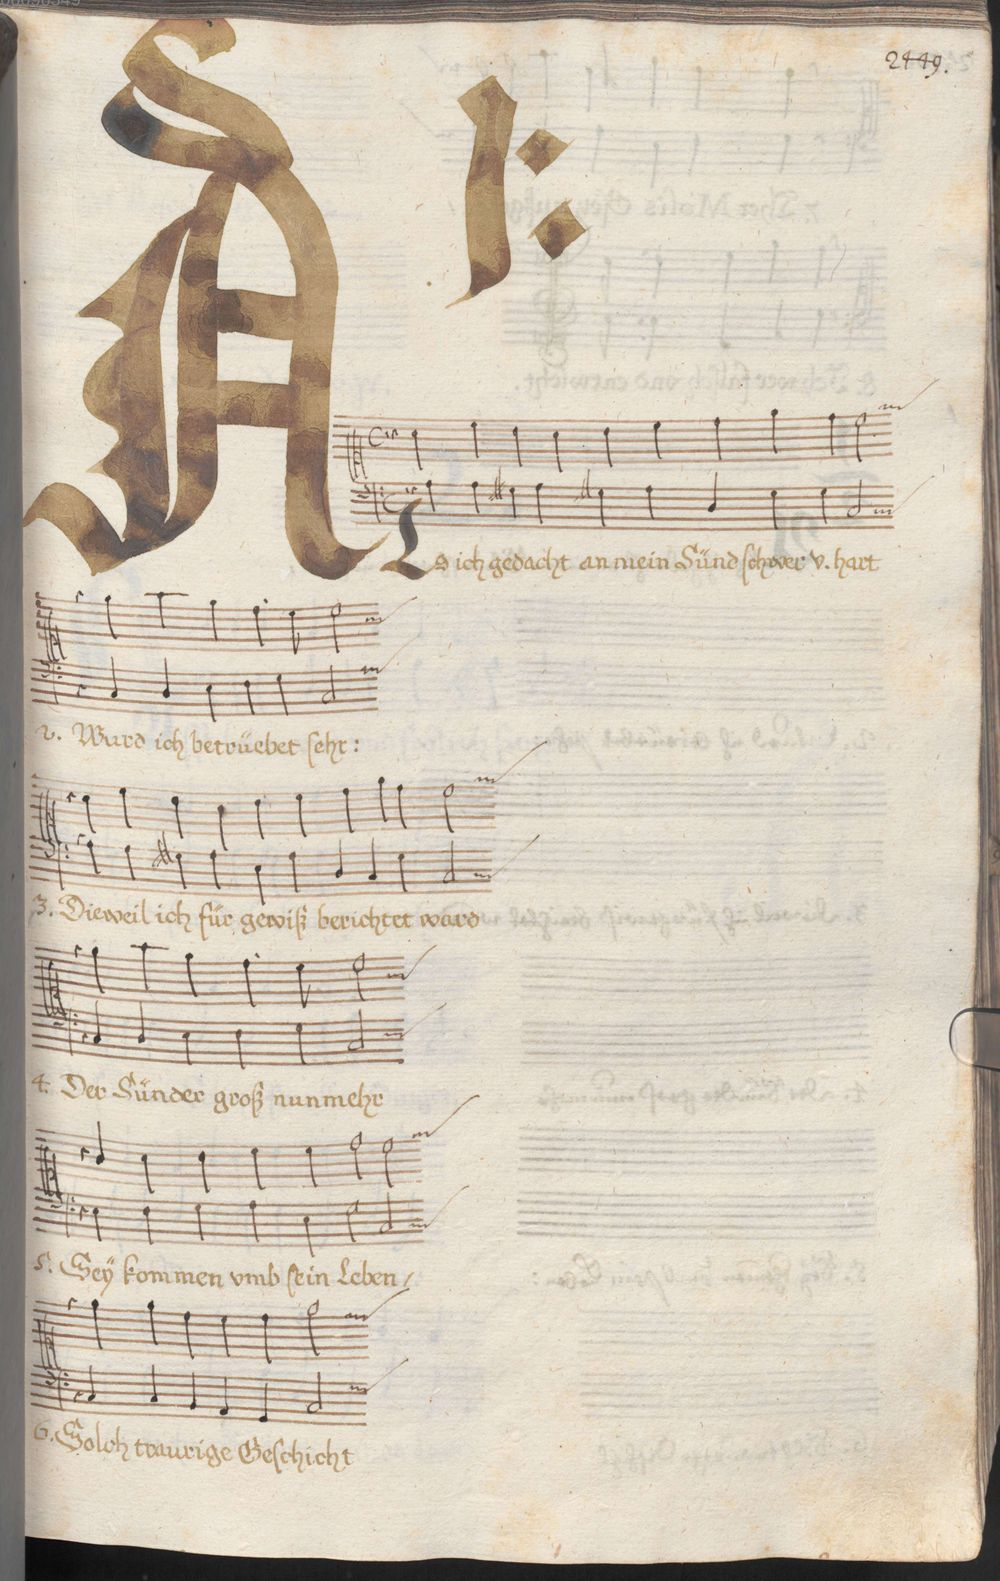 2449.
A 1:
Ls ich gedacht an mein Sünd schwer v. hart
2. Ward ich betrüebet sehr:
3. Dieweil ich für gewiß berichtet ward
4. Der Sünder groß nunmehr
5. Seÿ kommen vmb sein Leben /
6. Solch traurige Geschicht